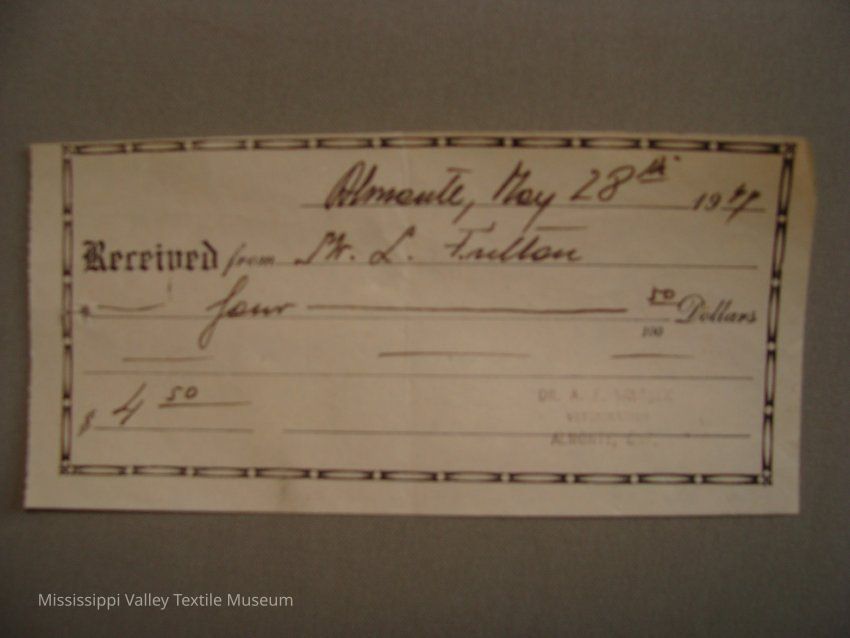 Almonte, May 28th 19
Received from Mr. L. Fulton
four 50/100 Dollars
$ 4 50
DR. A. F.
ALMONTE, ONT.
Mississippi Valley Textile Museum